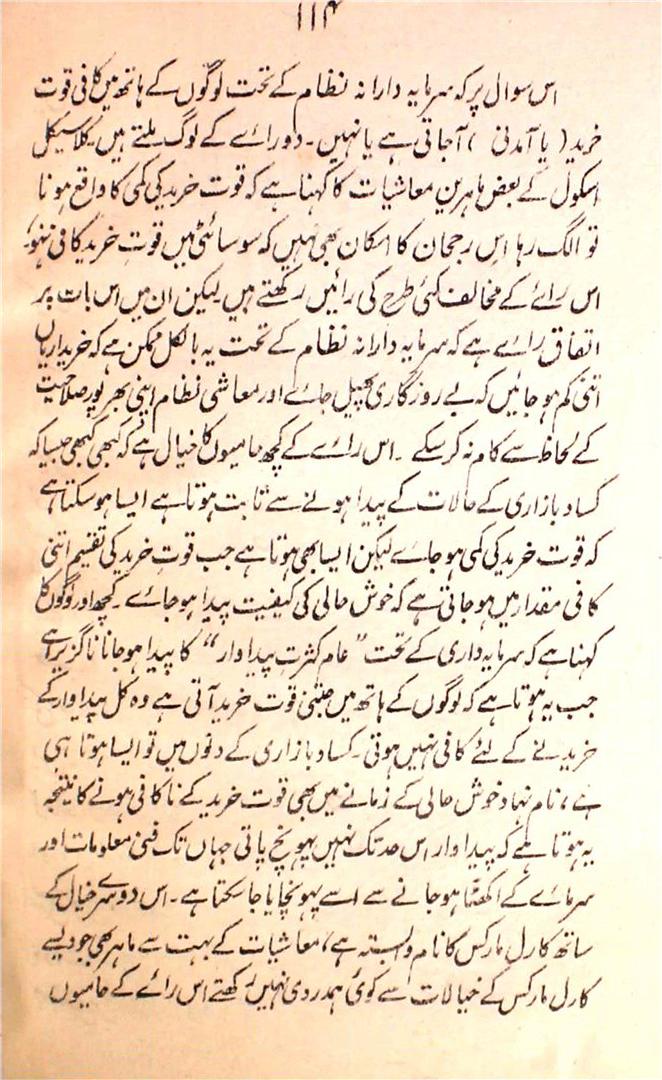 ۱۱۴
اس سوال پر کہ سرمایہ دارانہ نظام کے تحت لوگوں کے ہاتھ میں کافی قوت
خرید (یا آمدنی) آجاتی ہے یا نہیں۔ دو رائے کے لوگ ملتے ہیں کلاسیکل
اسکول کے بعض ماہرین معاشیات کا کہنا ہے کہ قوت خرید کی کمی کا واقع ہونا
تو الگ رہا اس رجحان کا امکان بھی نہیں کہ سوسائٹی میں قوتِ خرید کافی نہ ہو،
اس رائے کے مخالف کئی طرح کی رائیں رکھتے ہیں لیکن ان میں اس بات پر
اتفاق رائے ہے کہ سرمایہ دارانہ نظام کے تحت یہ بالکل ممکن ہے کہ خریداریاں
اتنی کم ہو جائیں کہ بے روزگاری پھیل جائے اور معاشی نظام اپنی بھر پور صلاحیت
کے لحاظ سے کام نہ کر سکے۔ اس رائے کے کچھ حامیوں کا خیال ہے کہ کبھی کبھی جیسا کہ
کساد بازاری کے حالات کے پیدا ہونے سے ثابت ہوتا ہے ایسا ہو سکتا ہے
کہ قوت خرید کی کمی ہو جائے لیکن ایسا بھی ہوتا ہے جب قوتِ خرید کی تقسیم اتنی
کافی مقدار میں ہو جاتی ہے کہ خوش حالی کی کیفیت پیدا ہو جائے۔ کچھ اور لوگوں کا
کہنا ہے کہ سرمایہ داری کے تحت ”عام کثرتِ پیداوار“ کا پیدا ہو جانا ناگزیر ہے
جب یہ ہوتا ہے کہ لوگوں کے ہاتھ میں جتنی قوت خرید آتی ہے وہ کل پیداوار کے
خریدنے کے لئے کافی نہیں ہوتی۔ کساد بازاری کے دنوں میں تو ایسا ہوتا ہی
ہے، نام نہاد خوش حالی کے زمانے میں بھی قوت خرید کے نا کافی ہونے کا نتیجہ
یہ ہوتا ہے کہ پیداوار اس حد تک نہیں پہونچ پاتی جہاں تک فنی معلومات اور
سرمائے کے اکھٹا ہو جانے سے اسے پہونچایا جا سکتا ہے۔ اس دوسرے خیال کے
ساتھ کارل مارکس کا نام وابستہ ہے، معاشیات کے بہت سے ماہر بھی جو ویسے
کارل مارکس کے خیالات سے کوئی ہمدردی نہیں رکھتے اس رائے کے حامیوں